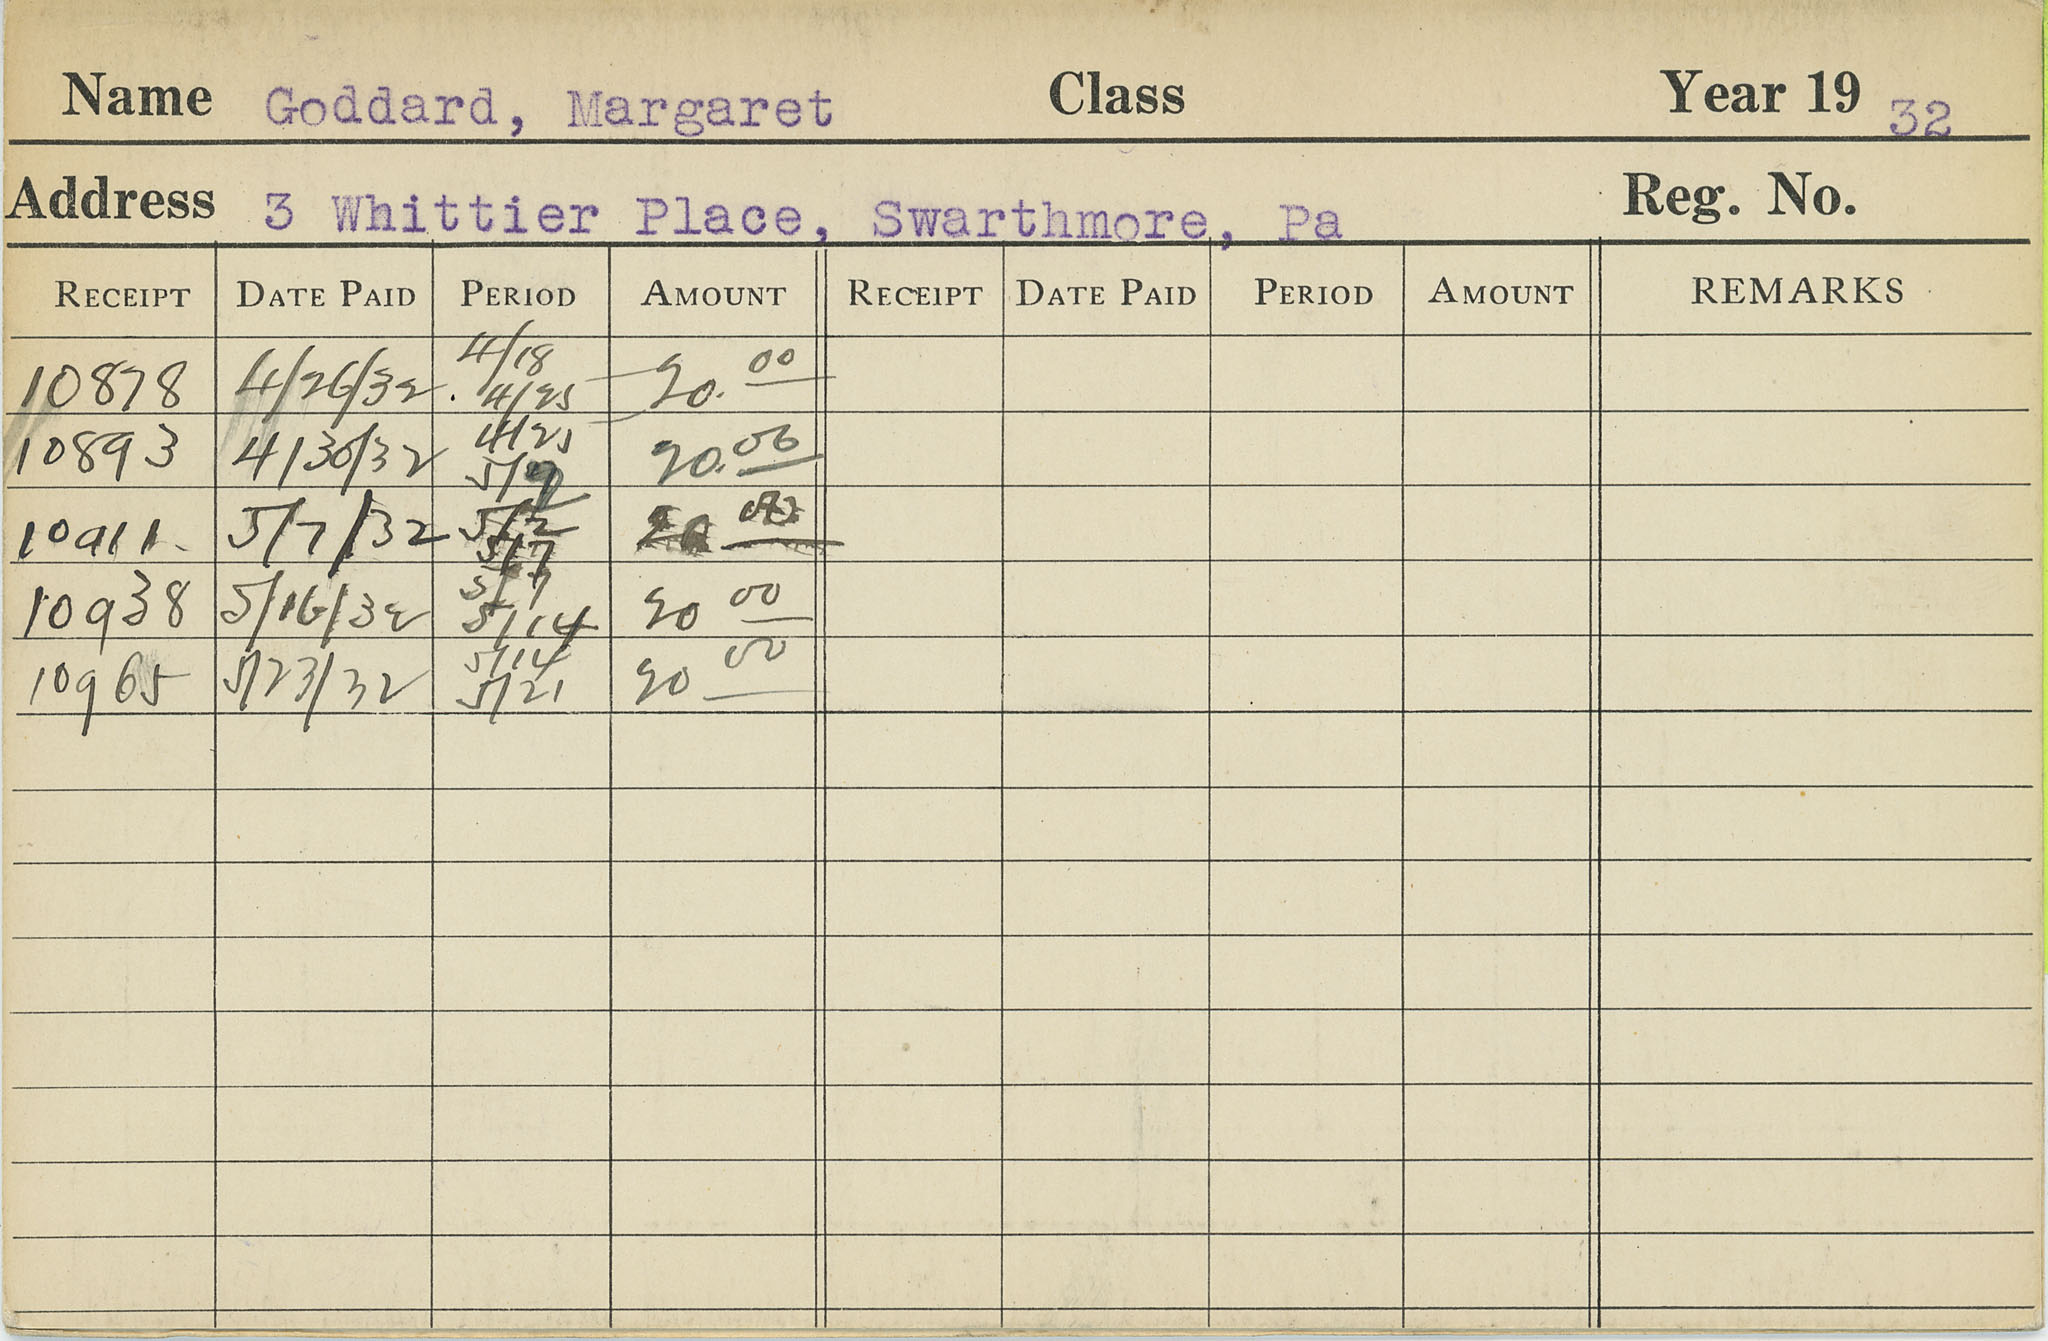 Name Goddard, Margaret Class Year 19 32
Address 3 Whittier Place, Swarthmore, Pa Reg. No.
RECEIPT DATE PAID PERIOD AMOUNT RECEIPT DATE PAID PERIOD AMOUNT REMARKS
4/18
10878 4/26/32 4/25 20.00
4/25
10893 4/30/32 5/2 20.00
10911 5/7/32 5/2 20 00
5/7
5/7
10938 5/16/32 5/14 20 00
5/14
10965 5/23/32 5/21 20 00